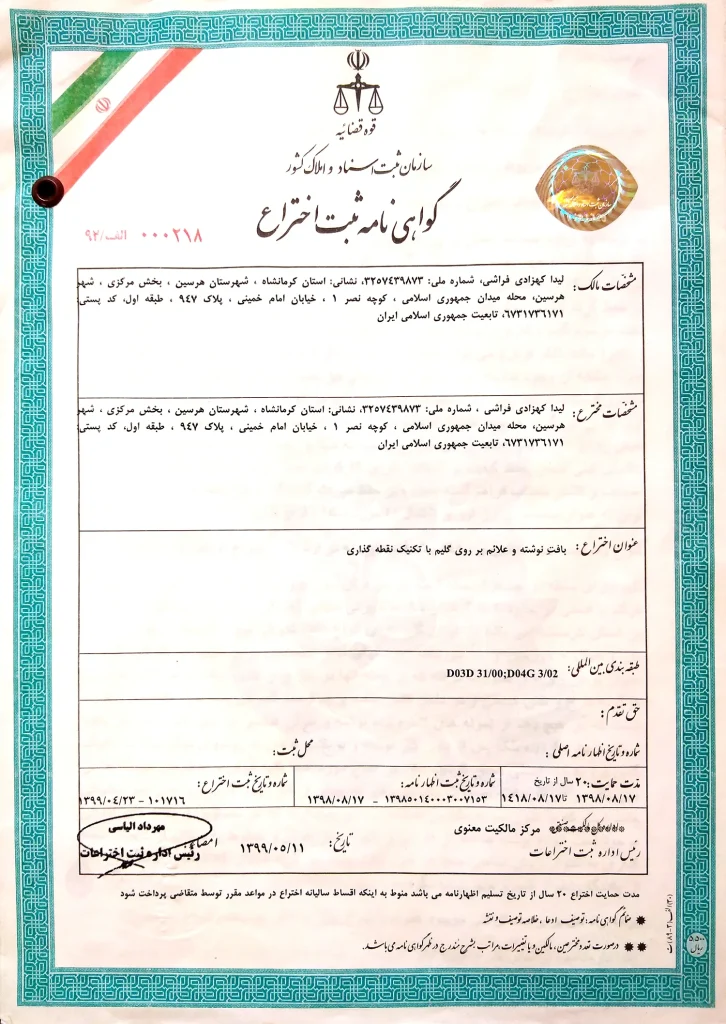 قوه قضائیه
سازمان ثبت اسناد و املاک کشور
گواهی نامه ثبت اختراع
۰۰۰۲۱۸ الف/۹۲
مشخصات مالک: لیدا کهزادی فراشی، شماره ملی: ۳۲۵۷۴۳۹۸۷۳، نشانی: استان کرمانشاه ، شهرستان هرسین ، بخش مرکزی ، شهر
هرسین، محله میدان جمهوری اسلامی ، کوچه نصر ۱ ، خیابان امام خمینی ، پلاک ۹۴۷ ، طبقه اول، کد پستی:
۶۷۳۱۷۳۶۱۷۱، تابعیت جمهوری اسلامی ایران
مشخصات مخترع: لیدا کهزادی فراشی ، شماره ملی: ۳۲۵۷۴۳۹۸۷۳، نشانی: استان کرمانشاه ، شهرستان هرسین ، بخش مرکزی ، شهر
هرسین، محله میدان جمهوری اسلامی ، کوچه نصر ۱ ، خیابان امام خمینی ، پلاک ۹۴۷ ، طبقه اول، کد پستی:
۶۷۳۱۷۳۶۱۷۱، تابعیت جمهوری اسلامی ایران
عنوان اختراع: بافتِ نوشته و علائم بر روی گلیم با تکنیک نقطه گذاری
طبقه بندی بین المللی: D03D 31/00;D04G 3/02
حق تقدم:
شماره و تاریخ اظهارنامه اصلی: محل ثبت:
مدت حمایت: ۲۰ سال از تاریخ
۱۳۹۸/۰۸/۱۷ تا ۱۴۱۸/۰۸/۱۷
شماره و تاریخ ثبت اظهارنامه:
۱۳۹۸۵۰۱۴۰۰۰۳۰۰۷۱۵۳ - ۱۳۹۸/۰۸/۱۷
شماره و تاریخ ثبت اختراع:
۱۰۱۷۱۶ - ۱۳۹۹/۰۴/۲۳
مرکز مالکیت معنوی
رئیس اداره ثبت اختراعات
تاریخ: ۱۳۹۹/۰۵/۱۱
امضاء:
مهرداد الیاسی
رئیس اداره ثبت اختراعات
مدت حمایت اختراع ۲۰ سال از تاریخ تسلیم اظهارنامه می باشد منوط به اینکه اقساط سالیانه اختراع در مواعد مقرر توسط متقاضی پرداخت شود
✷ ضمائم گواهی نامه: توصیف، ادعا، خلاصه توصیف و نقشه
✷ ✷ درصورت تعدد مخترعین، مالکین و یا تغییرات، مراتب بشرح مندرج در ظهر گواهی نامه می باشد.
ریال